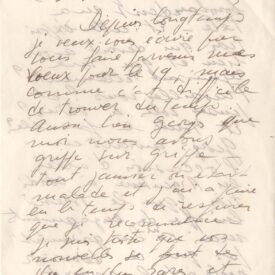 Depuis longtemps
je veux vous écrire pour
vous faire parvenir nos
voeux pour le 19, mais
comme c'est difficile
de trouver du temps.
Aussi bien George que
moi nous avons
grippe sur grippe
tout janvier on était
malade et j'ai à faire
en le temps de respirer
que je recommence
Je suis triste que vos
nouvelles se font de
plus en plus rares et